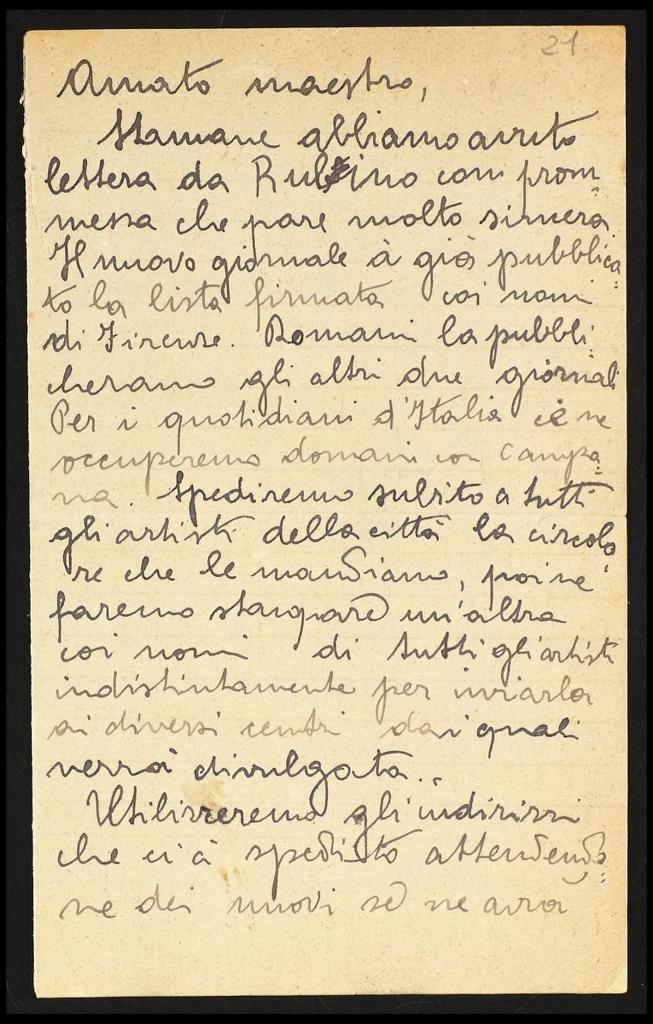 21
Amato maestro,
Stamane abbiamo avuto
lettera da Rubino con prom=
messa che pare molto sincera.
Il nuovo giornale à già pubblica=
to la lista firmata coi nomi
di Firenze. Domani la pubbli
cheranno gli altri due giornali
Per i quotidiani d'Italia ce ne
occuperemo domani con Campa=
na. Spediremo subito a tutti
gli artisti della città la circola
re che le mandiamo, poi ne
faremo stampare un'altra
coi nomi di tutti gli artisti
indistintamente per inviarla
ai diversi centri dai quali
verrà divulgata..
Utilizzeremo gli indirizzi
che ci à spedito attendendo=
ne dei nuovi se ne avrà